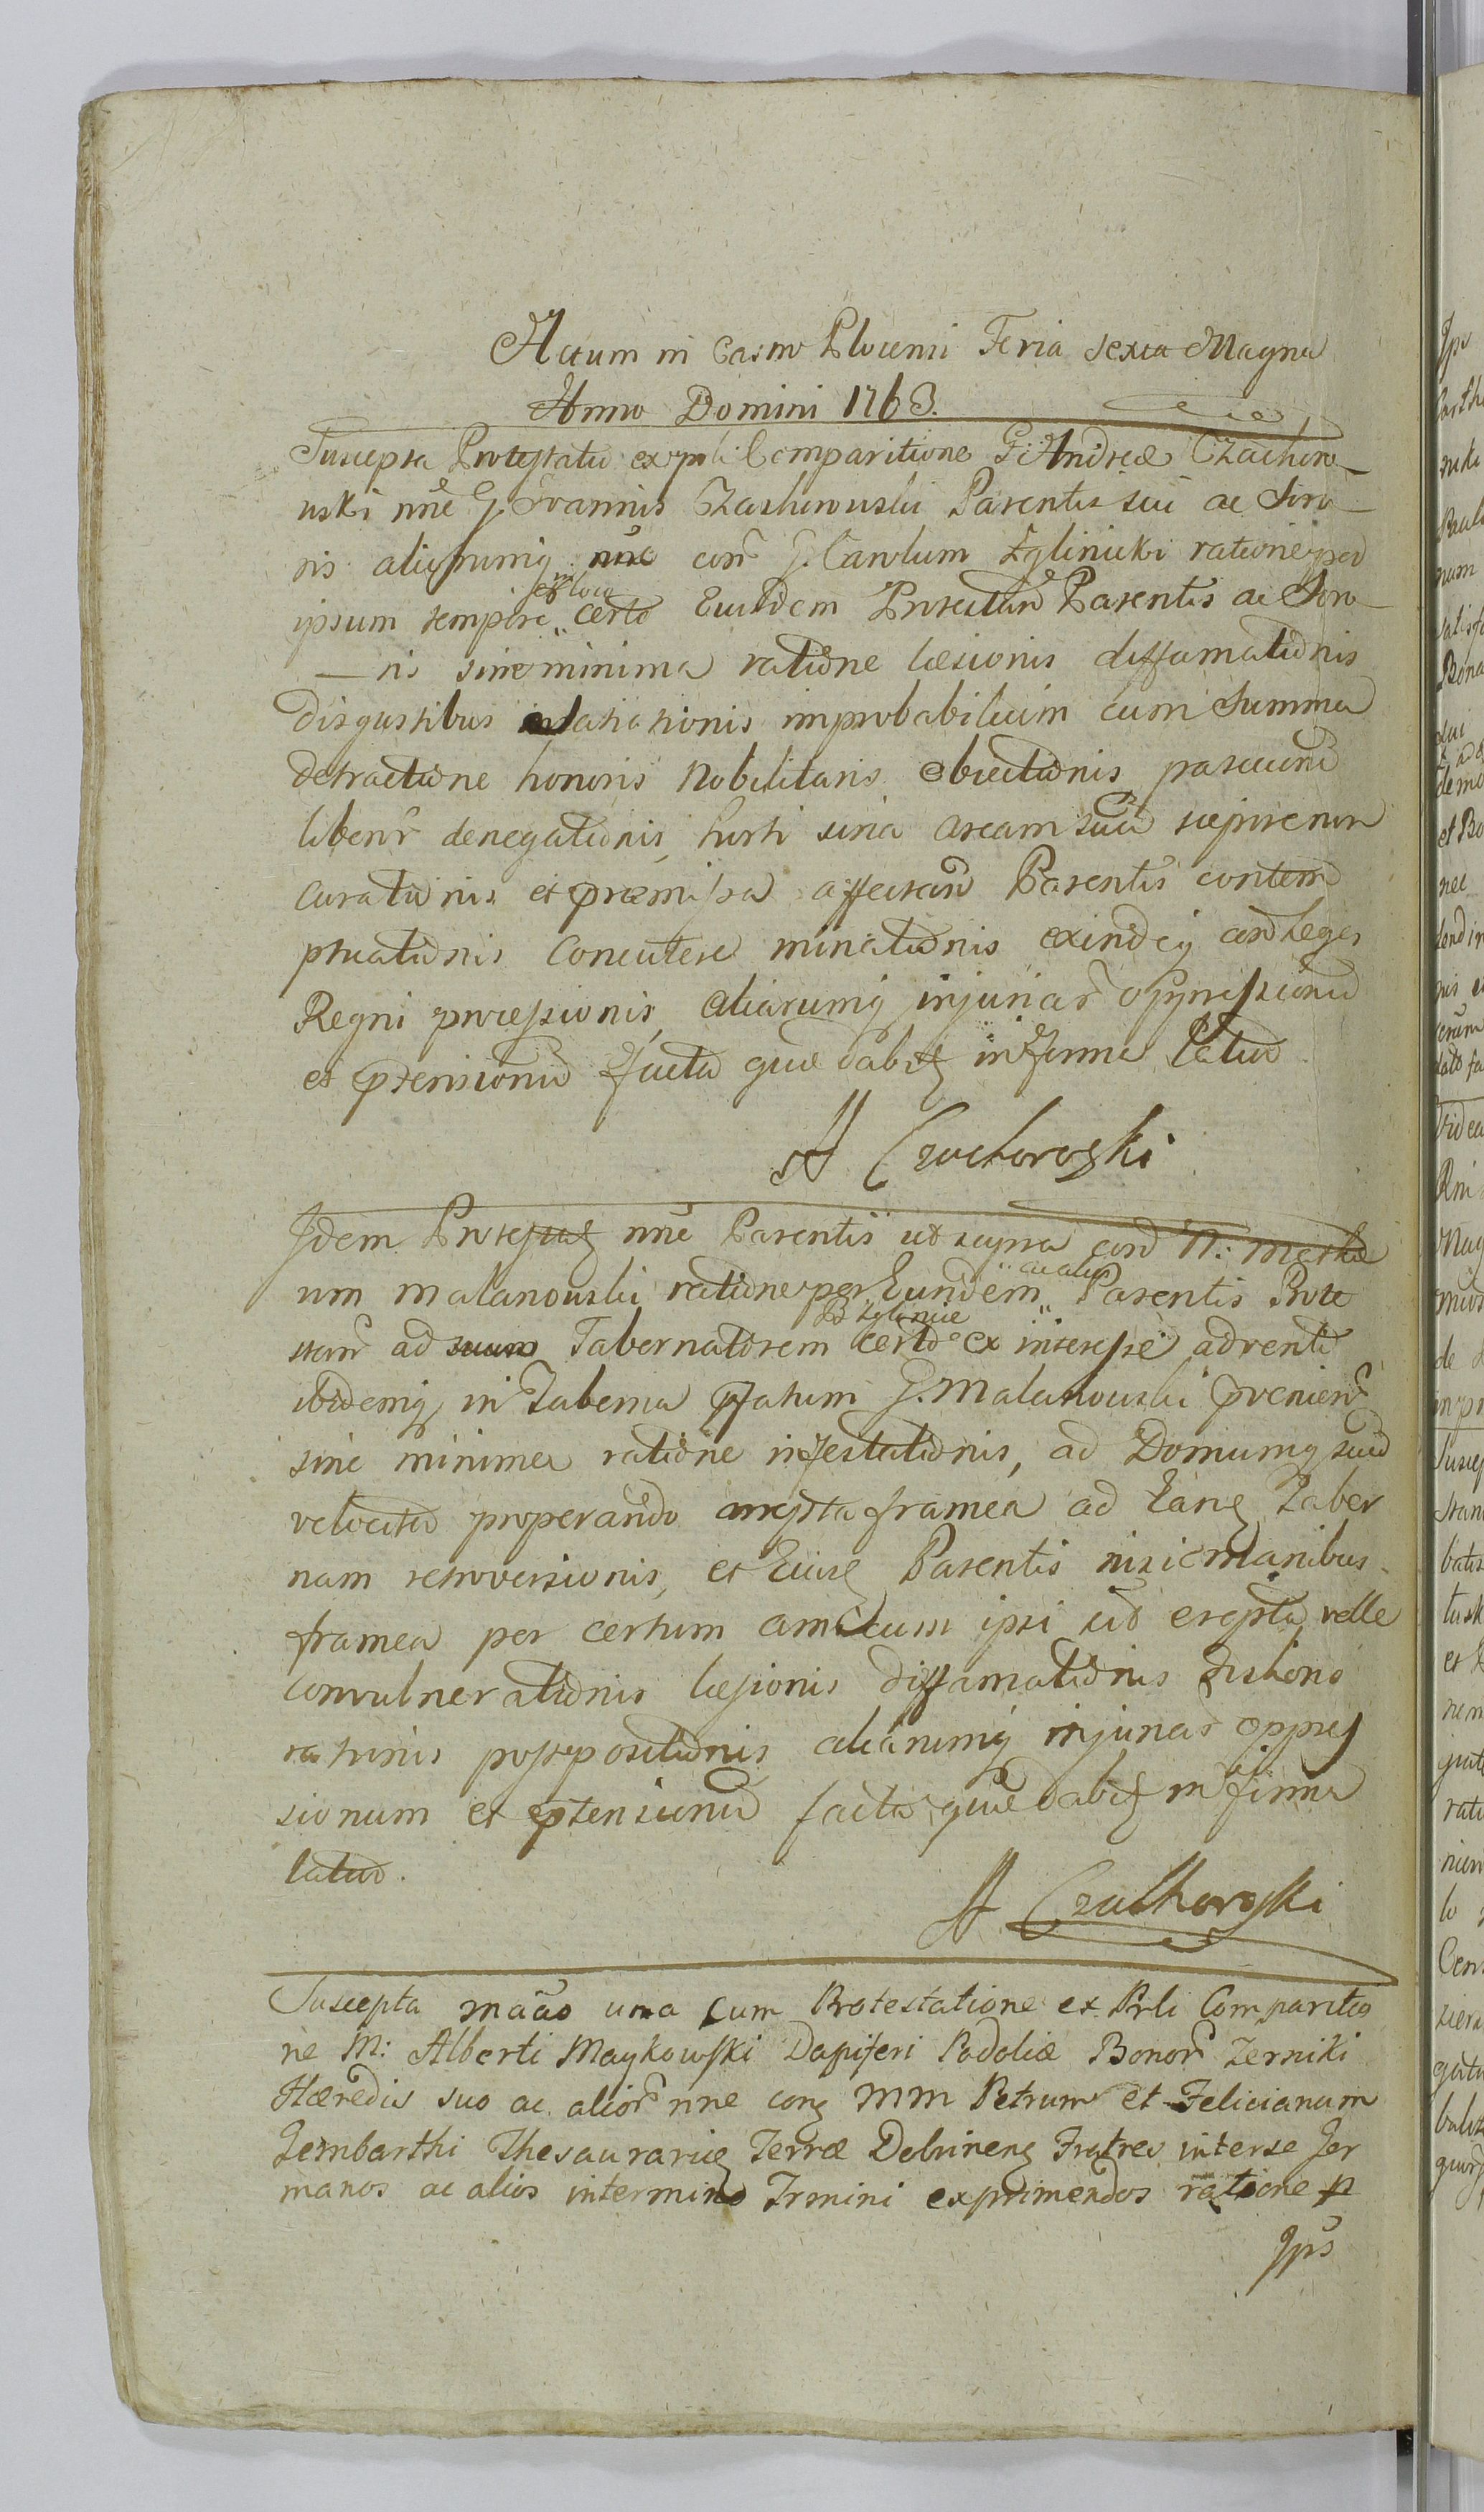 Actum in Castro Plocensi Feria sexta Magna
Anno Domini 1763.
Suscepta Protestatio ex prli Comparitione G: Andreæ Czachoro
wski nne G. Joannis Czachorowski Parentis sui ac Soro
ris aliorumq nne con G. Carolum Zglinicki ratione per
ipsum tempore et in loco certo Eiusdem Protestan Parentis ac Soro
ris sine minima ratione læsionis diffamationis
disgustibus improbabilium cum Summa
detractione honoris Nobilitaris obiectionis pascuorum
liberor denegationis, horti circa aream suam sæpire non
curationis et præmissa affectan Parentis contem
ptuationis Concutere minationis exindeq con Leges
Regni processionis, aliarumq injuriar oppressionum
et ptensionum facta quæ dabit in forma latius
A Czachoroski
Idem Protestas nne Parentis ut supra con N: Mathæ
um Malanowski ratione per Eundem ac alior Parentis Prote
stan ad suum Tabernatorem B Zglinice certo ex interesse adventi
ibidemq in Taberna pfatum G. Malanowski pvenien
sine minima ratione infestationis, ad Domumq suam
velociter properando arrepta framea ad Eanq Taber
nam retroversionis, et Eiusq Parentis nisi e manibus
framea per certum amicum ipsi sit erepta velle
convulnerationis læsionis diffamationis dishono
rationis postpositionis aliarumq injuriar oppres
sionum et ptensionum facta quæ dabit in forma
latius.
A Czachoroski
Suscepta maao una cum Protestatione ex Prli Comparitio
ne M: Alberti Maykowski Dapiferi Podoliæ Bonor Zerniki
Hæredis suo ac alior nne conq MM Petrum et Felicianum
Zembarthi Thesaurarieq Terræ Dobrinenq Fratres inter se Ger
manos ac alios in termino Trmini exprimendos ratione p
Ips